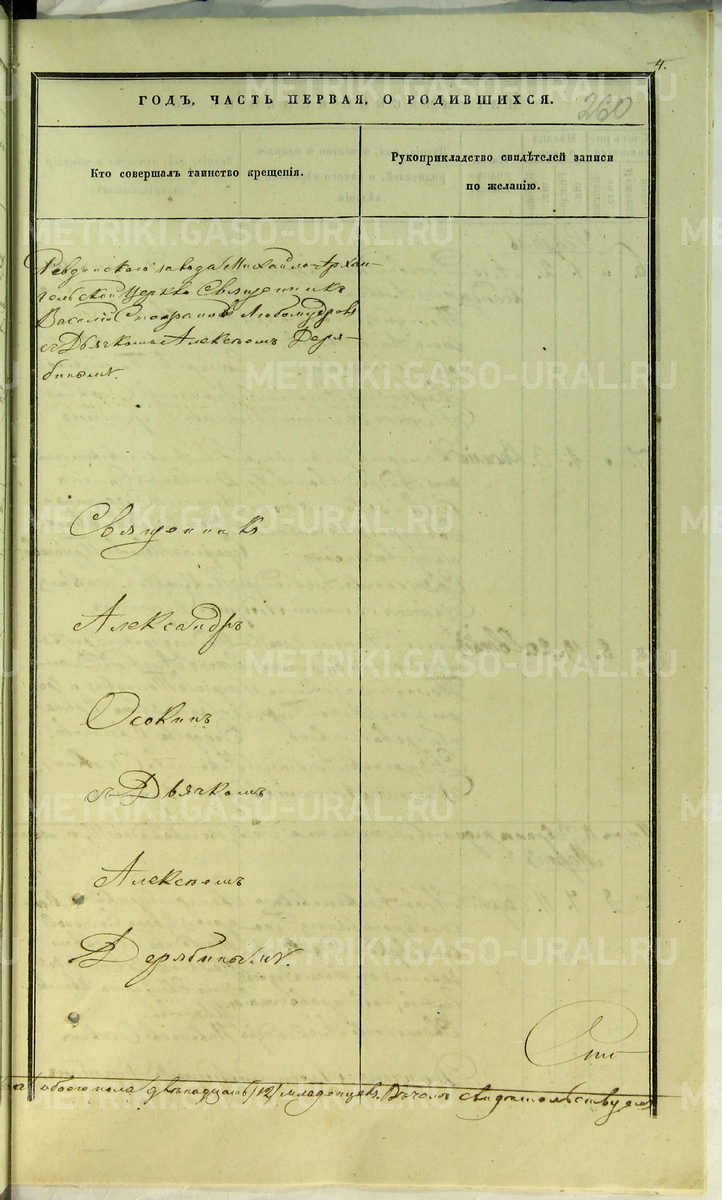 4.
260
ГОДЪ, ЧАСТЬ ПЕРВАЯ, О РОДИВШИХСЯ.
Кто совершалъ таинство крещенія.
Рукоприкладство свидѣтелей записи
по желанію.
Ревдинскаго завода Михайло-Архан-
гельской Церкви Священникъ
Василій Любомудровъ
съ Дьячкомъ Алексѣемъ Деря-
бинымъ.
Священникъ
Александръ
Осокинъ
съ Дьячкомъ
Алексѣемъ
Дерябинымъ.
обоего пола двенадцать /12/ младенцевъ. Въ чемъ свидѣтельствуемъ
METRIKI.GASO-URAL.RU